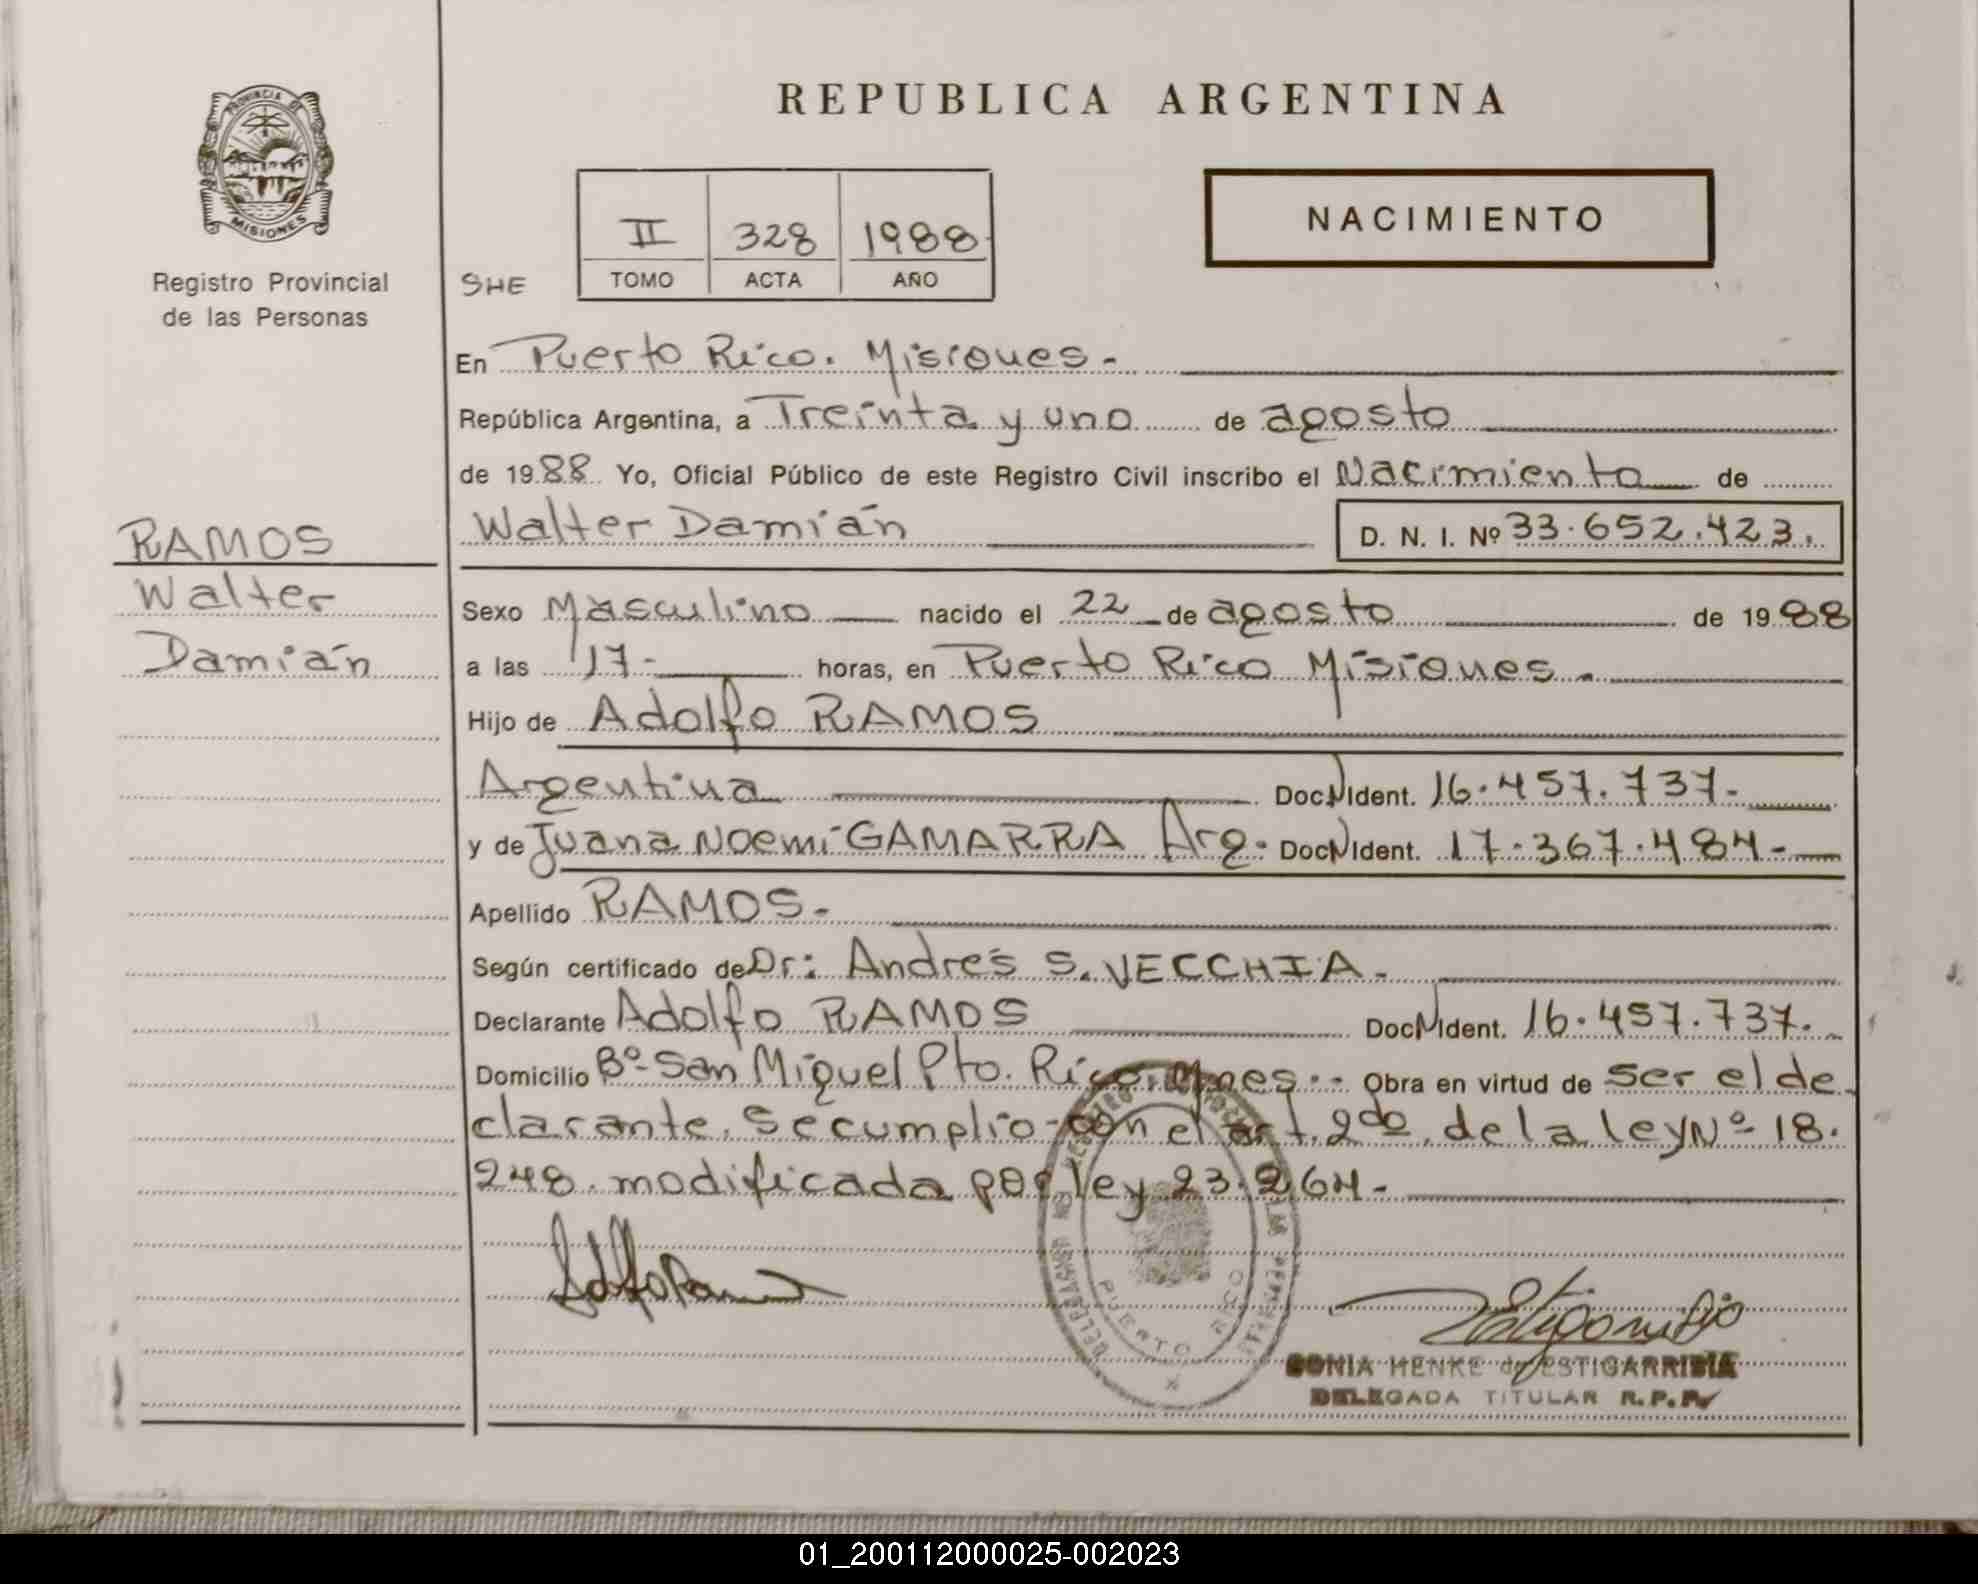 REPUBLICA ARGENTINA
PROVINCIA DE
MISIONES
Registro Provincial
de las Personas
SHE
II 328 1988
TOMO ACTA AÑO
NACIMIENTO
En Puerto Rico. Misiones.-
República Argentina, a Treinta y uno de agosto
de 1988 Yo, Oficial Público de este Registro Civil inscribo el Nacimiento de
Walter Damián D. N. I. Nº 33.652.423.
RAMOS
Walter
Damián
Sexo Masculino nacido el 22 de agosto de 1988
a las 17- horas, en Puerto Rico Misiones.
Hijo de Adolfo RAMOS
Argentina Doc N Ident. 16.457.737.-
y de Juana Noemi GAMARRA Arg. Doc N Ident. 17.367.484.-
Apellido RAMOS.-
Según certificado de Dr: Andrés S. VECCHIA.-
Declarante Adolfo RAMOS Doc N Ident. 16.457.737.
Domicilio Bº San Miguel Pto. Rico. Mnes.- Obra en virtud de ser el de
clarante. Se cumplio con el art. 2do. de la ley Nº 18.
248. modificada por ley 23.264.-
Adolfo Ramos
PUERTO RICO
SONIA HENKE de ESTIGARRIBIA
DELEGADA TITULAR R.P.P.
01_200112000025-002023